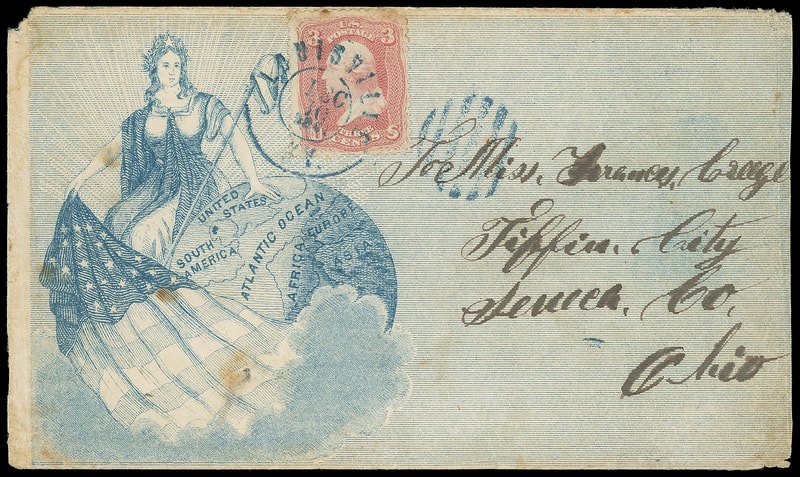 U.S.
POSTAGE
3 3
CENTS
LOUISVILLE
UNITED
STATES
SOUTH
AMERICA
ATLANTIC OCEAN
EUROPE
AFRICA
ASIA
To Miss. Frances,
Tiffin. City
Seneca. Co.
Ohio